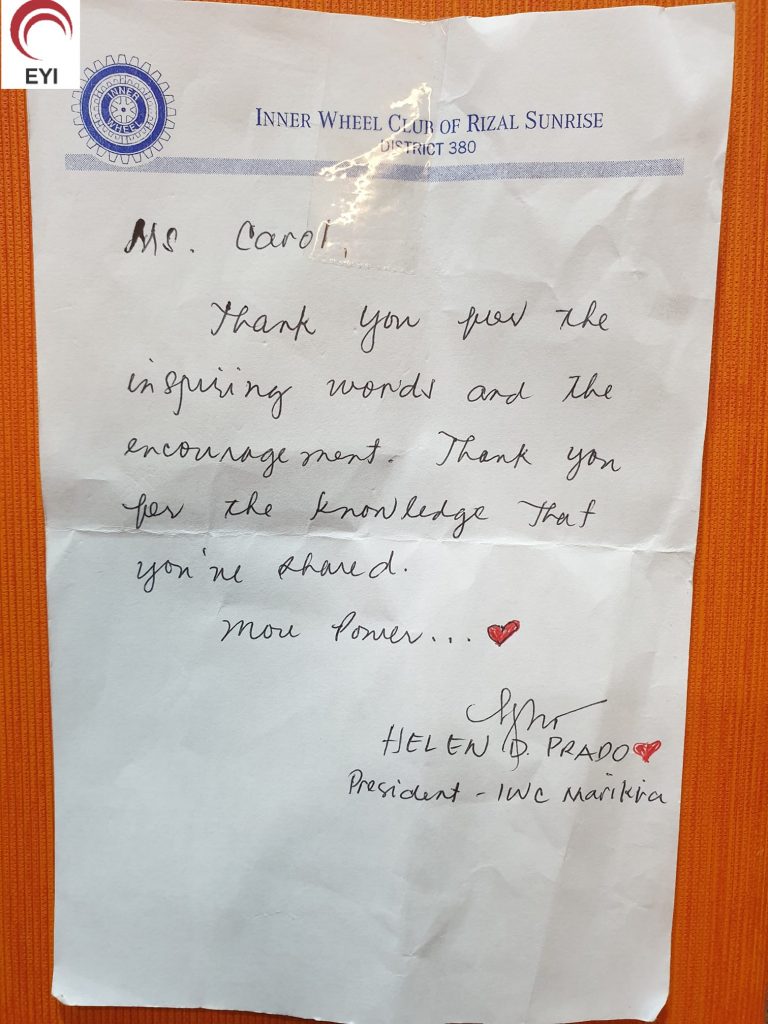 EYI
INNER WHEEL
INNER WHEEL CLUB OF RIZAL SUNRISE
DISTRICT 380
Ms. Carol,
Thank you for the
inspiring words and the
encouragement. Thank you
for the knowledge that
you've shared.
More Power...
HELEN D. PRADO
President - IWC Marikina